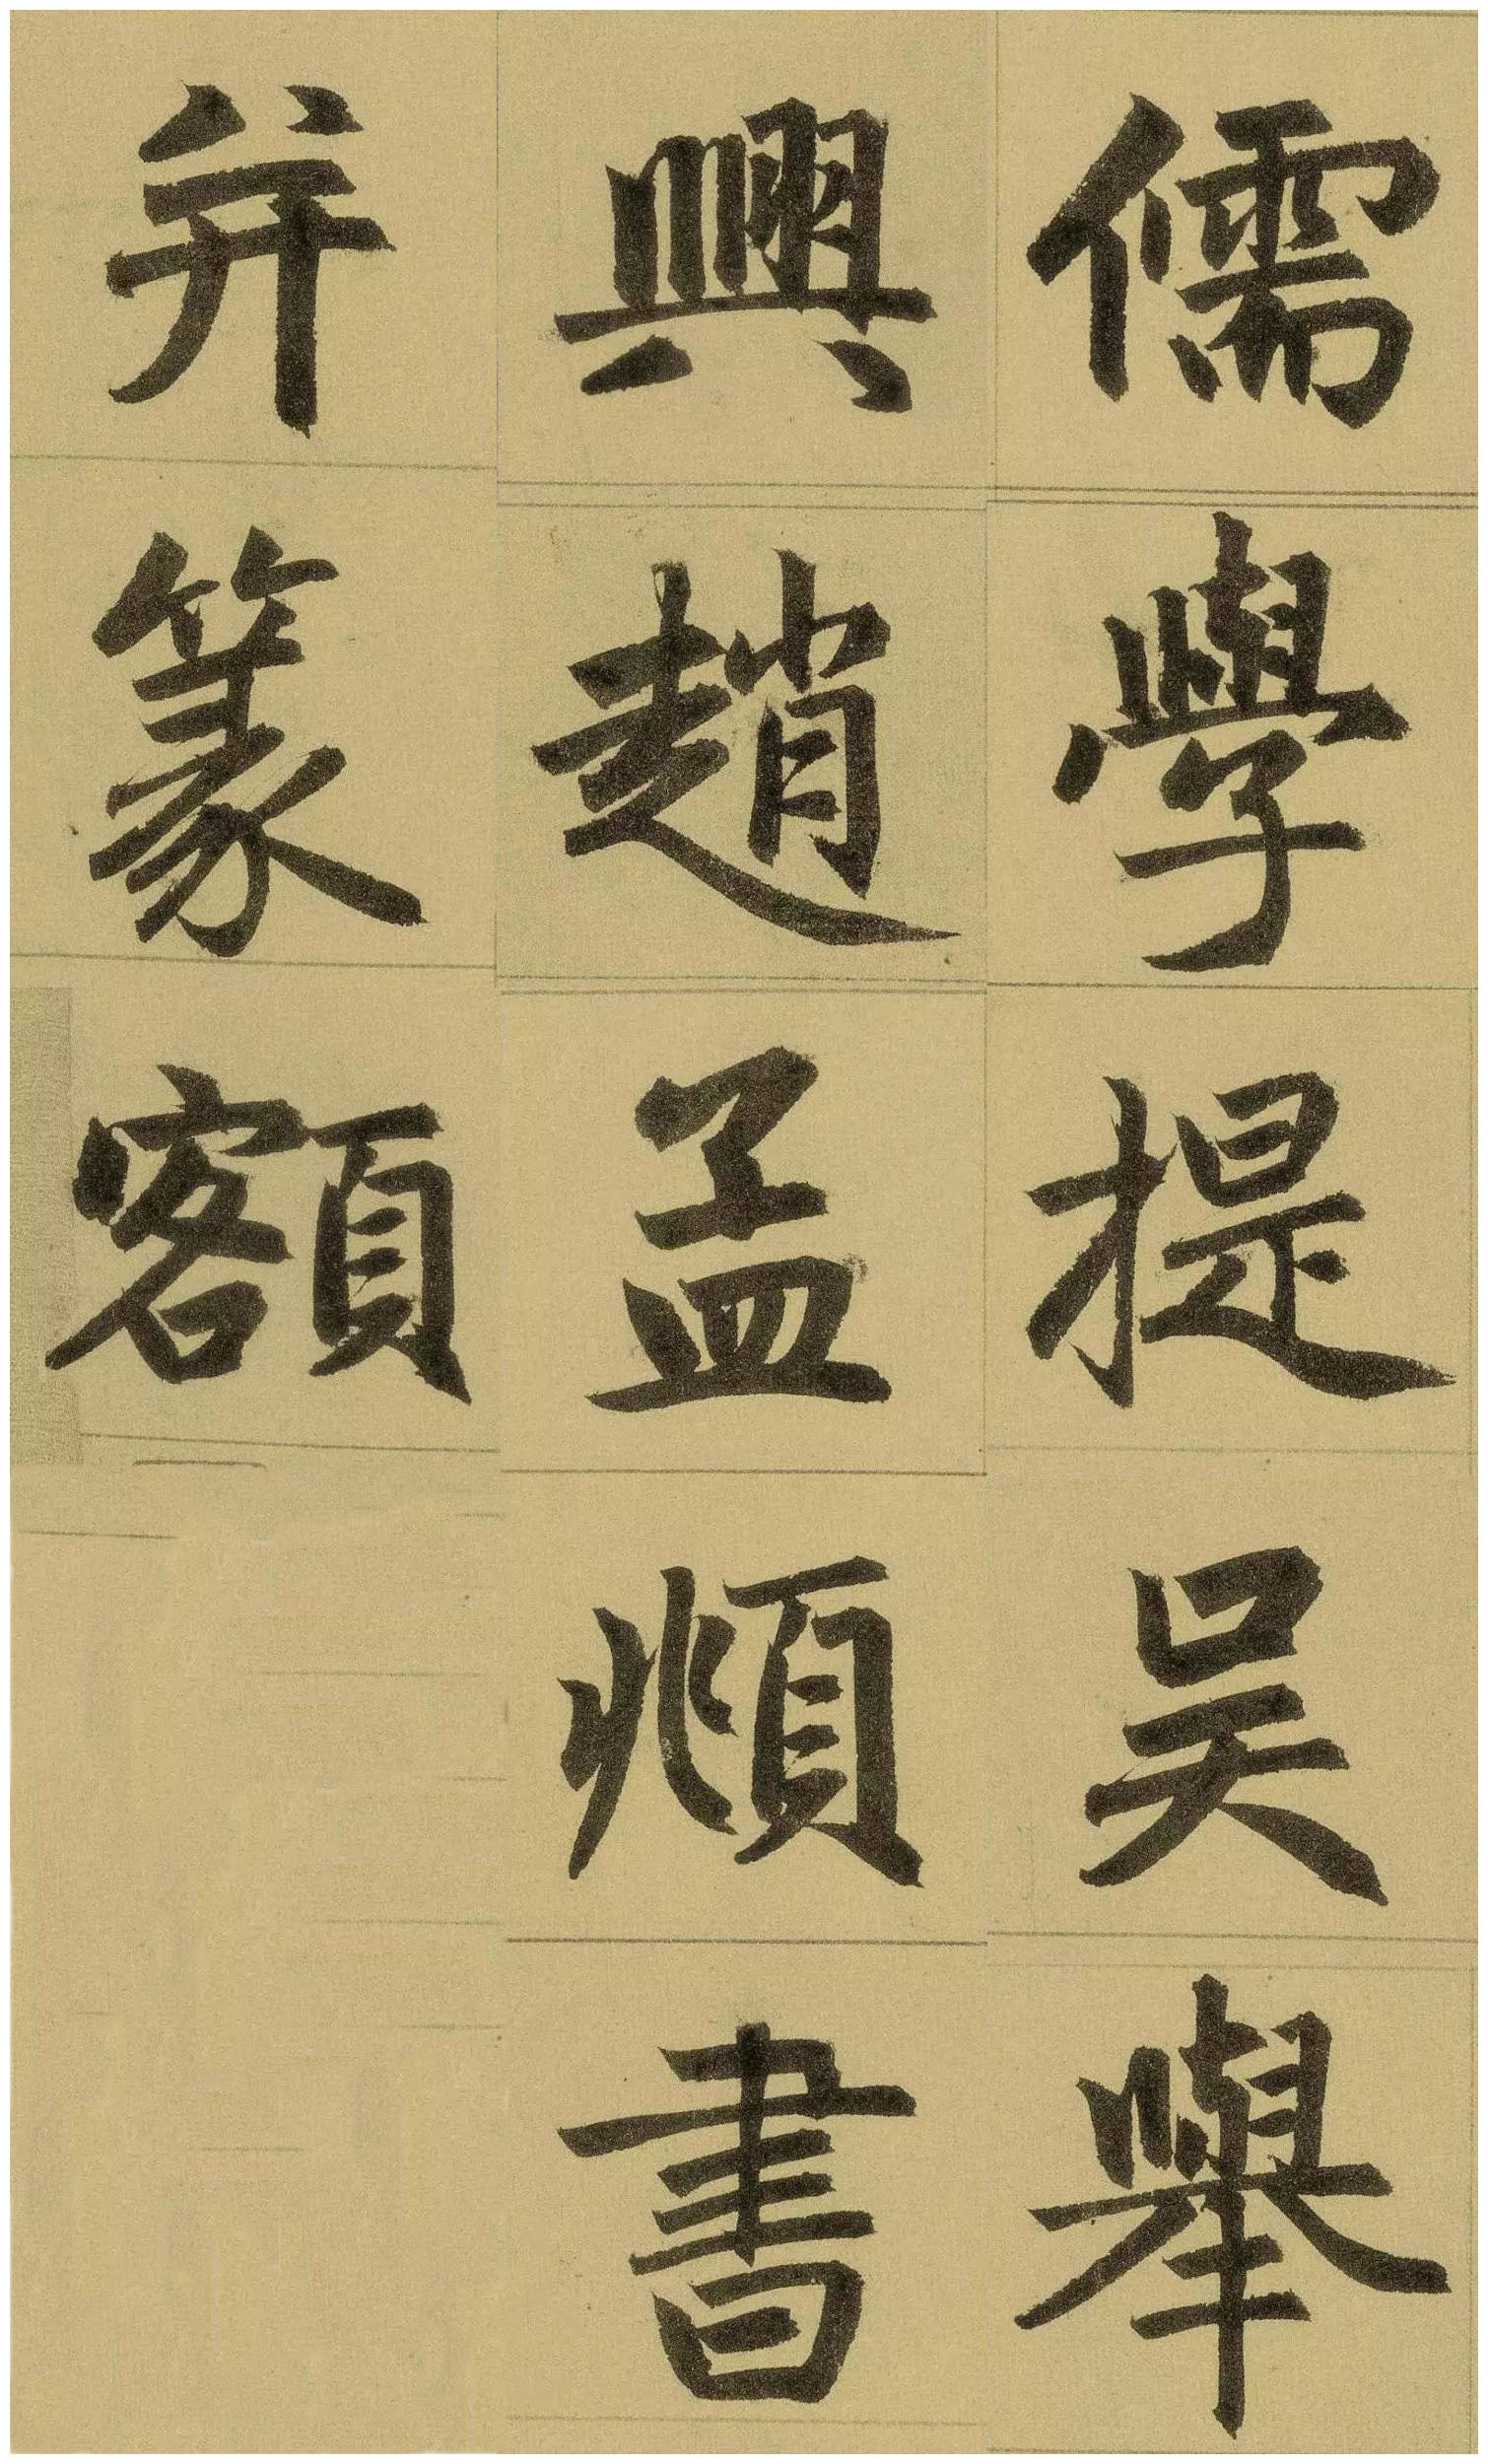 儒學提吳舉
興趙孟頫書
并篆額